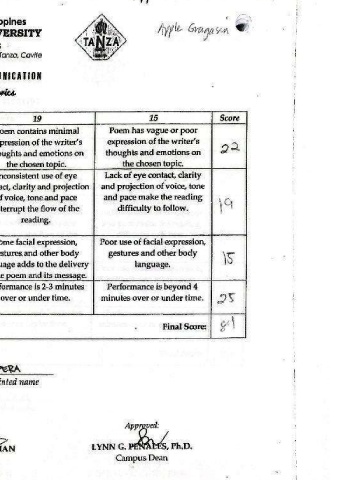 ppines
VERSITY
TANZA
Tanza, Cavite
Apple Gragasin
UNICATION
19 15 Score
oem contains minimal
pression of the writer's
oughts and emotions on
the chosen topic.
Poem has vague or poor
expression of the writer's
thoughts and emotions on
the chosen topic.
22
nconsistent use of eye
act, clarity and projection
f voice, tone and pace
terrupt the flow of the
reading.
Lack of eye contact, clarity
and projection of voice, tone
and pace make the reading
difficulty to follow.
19
ome facial expression,
stures and other body
uage adds to the delivery
e poem and its message.
Poor use of facial expression,
gestures and other body
language.
15
formance is 2-3 minutes
over or under time.
Performance is beyond 4
minutes over or under time.
25
Final Score: 81
PERA
inted name
Approved:
HAN
LYNN G. PENALES, Ph.D.
Campus Dean